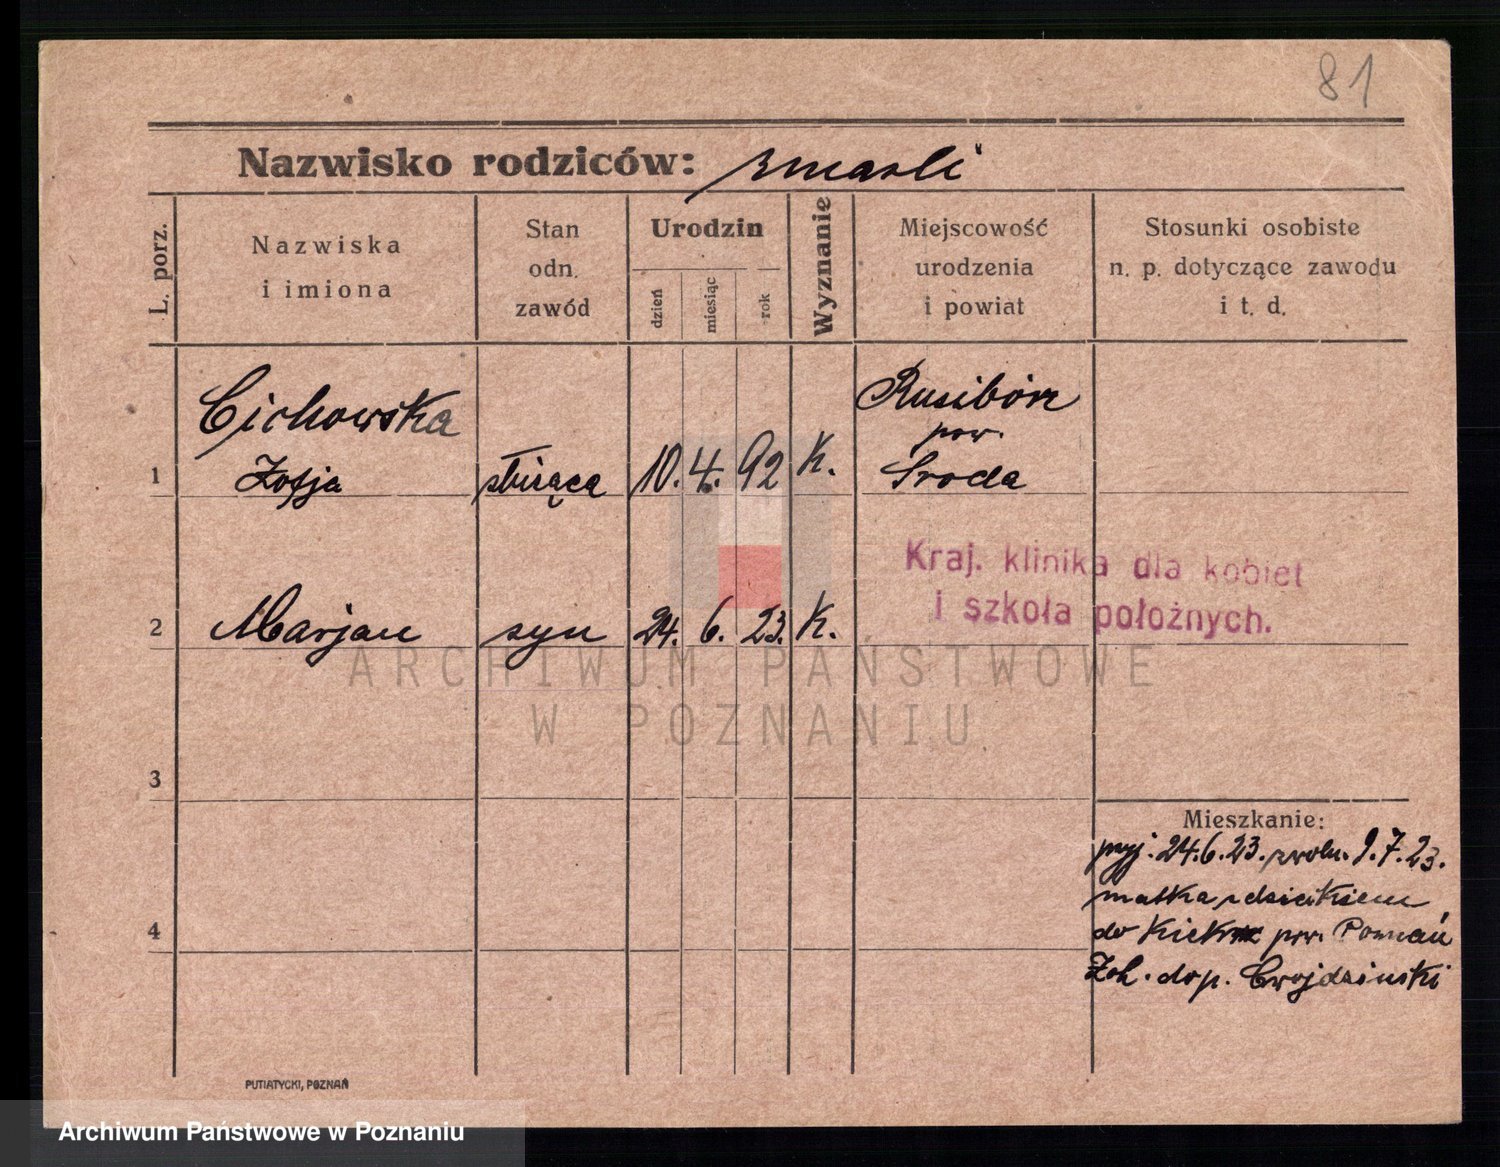 81
Nazwisko rodziców: zmarli
L. porz.
Nazwiska
i imiona
Stan
odn.
zawód
Urodzin
dzień
miesiąc
rok
Wyznanie
Miejscowość
urodzenia
i powiat
Stosunki osobiste
n. p. dotyczące zawodu
i t. d.
Cichowska
1 Zofja służąca 10. 4. 92 K.
Rusibórz
pow.
Środa
Kraj. klinika dla kobiet
i szkoła położnych.
2 Marjan syn 24. 6. 23. K.
ARCHIWUM PAŃSTWOWE
W POZNANIU
3
Mieszkanie:
przyj. 24.6.23. zwoln. 9.7.23.
matka z dzieckiem
do pow. Poznań
dop.
4
PUTIATYCKI, POZNAŃ
Archiwum Państwowe w Poznaniu